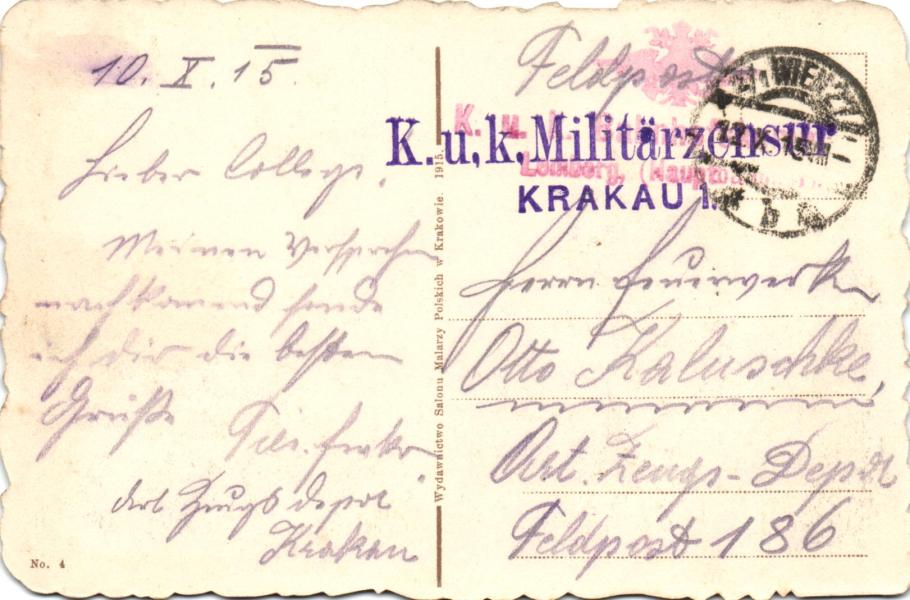 10. X. 15.
Lieber College,
Meinen Versprechen
nachkomend sende
ich dir die besten
Grüße
Art Zeugs depot
Krakau
No. 4
Wydawnictwo Salonu Malarzy Polskich w Krakowie. 1915.
Feldpost
K. u. k.
Lemberg,
K.u.k. Militärzensur
KRAKAU 1.
WIEN
Herrn Feuerwerker
Otto Kaluschke,
Art. Zeugs-Depot
Feldpost 186